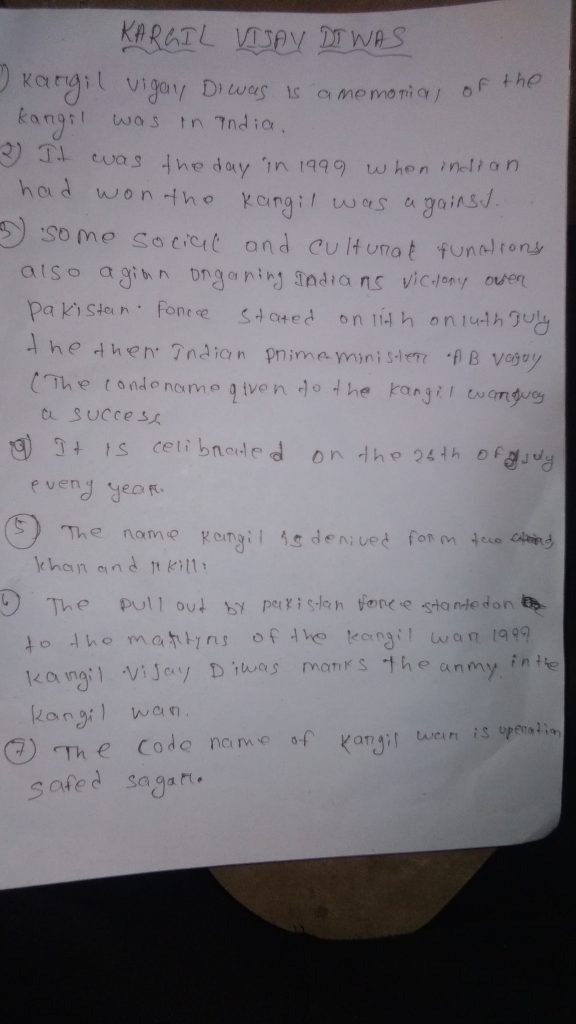 KARGIL VIJAY DIWAS
1) Kargil vigay Diwas is a memorial of the
kargil was in India.
2) It was the day in 1999 when indian
had won the kargil was against.
3) some social and cultural functions
also organing Indians victory over
pakistan. Force stated on 11th on 14th July
the then Indian prime minister AB
(The condename given to the kargil
a success
4) It is celibrated on the 26th of July
every year.
5) The name kargil is derived form two
khan and rkill:
6) The pull out by pakistan force started on
to the martyrs of the kargil war 1999
kargil vijay Diwas marks the army in the
kargil war.
7) The code name of kargil war is operation
safed sagar.